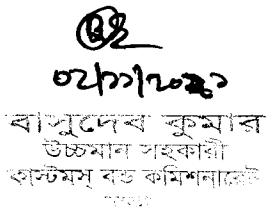 ০২/১১/২০২১
বাসুদেব কুমার
উচ্চমান সহকারী
কাস্টমস্ বন্ড কমিশনারেট